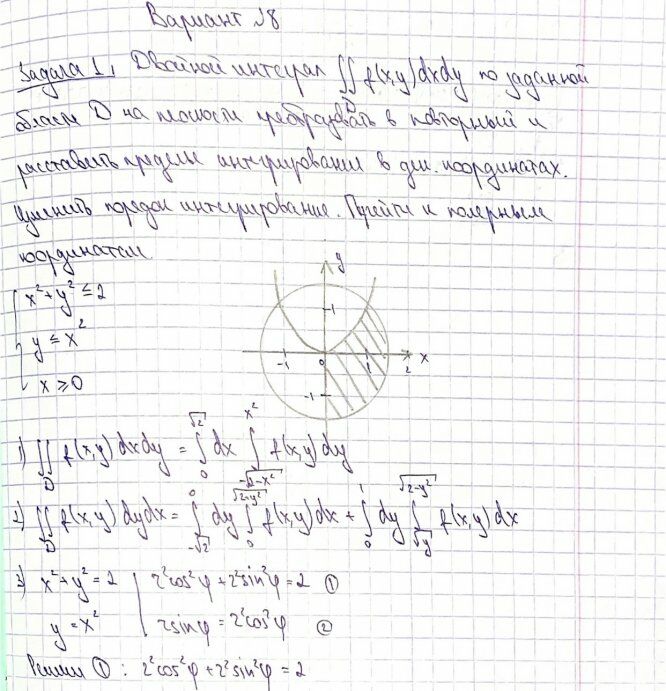 Вариант №8
Задача 1. Двойной интеграл ∬_D f(x,y)dxdy по заданной
области D на плоскости преобразовать в повторный и
расставить пределы интегрирования в дек. координатах.
Изменить порядок интегрирование. Перейти к полярным
координатам
{ x² + y² ≤ 2
y ≤ x²
x ≥ 0
y
1
-1 0 1 2 x
-1
1) ∬_D f(x,y)dxdy = ∫_0^{√2} dx ∫_{-√(2-x²)}^{x²} f(x,y)dy
2) ∬_D f(x,y)dydx = ∫_{-√2}^0 dy ∫_0^{√(2-y²)} f(x,y)dx + ∫_0^1 dy ∫_{√y}^{√(2-y²)} f(x,y)dx
3) x² + y² = 2 | r²cos²φ + r²sin²φ = 2 ①
y = x² | r sinφ = r²cos²φ ②
Решим ①: r²cos²φ + r²sin²φ = 2